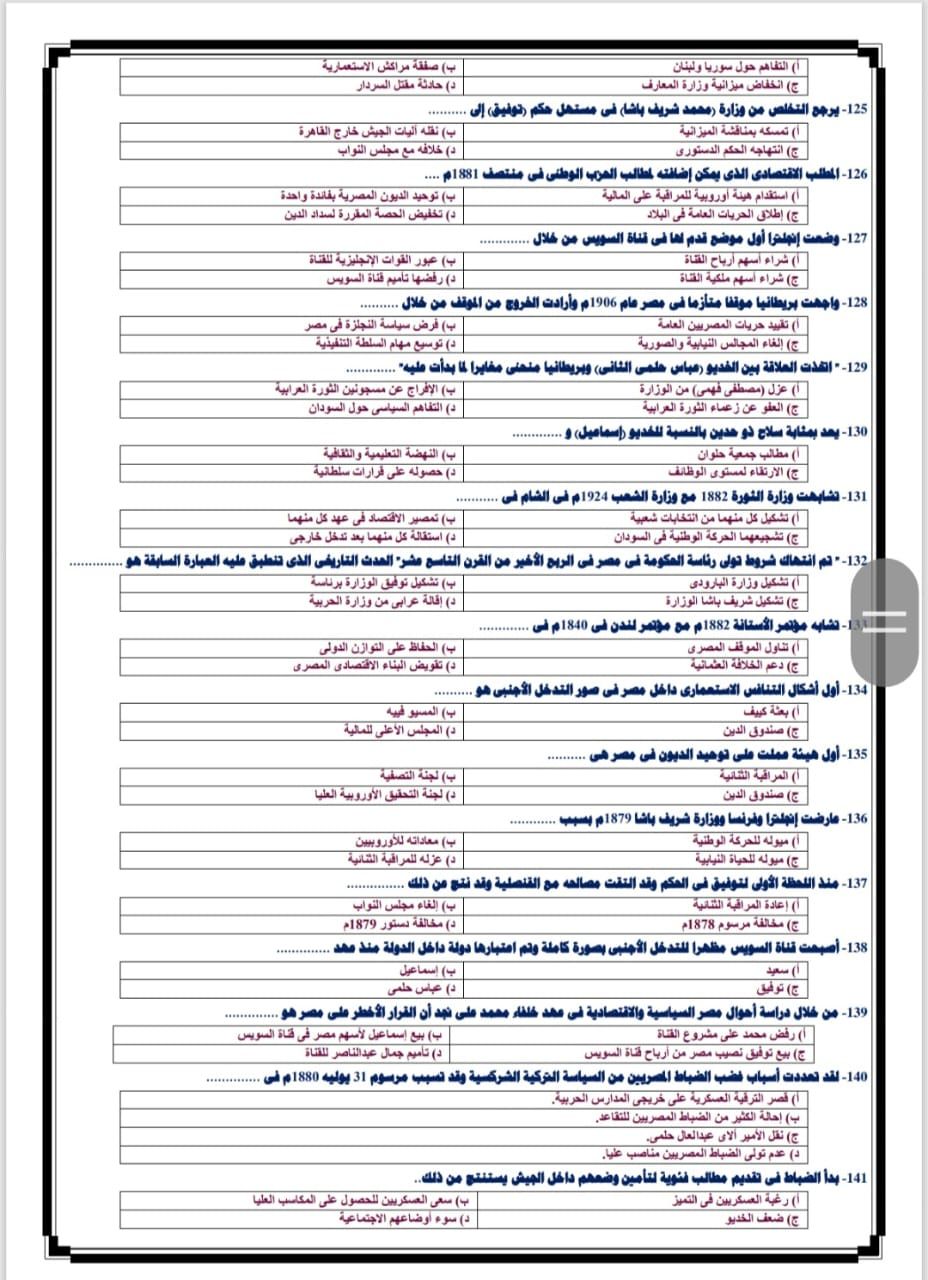 أ) التفاهم حول سوريا ولبنان ب) صفقة مراكش الاستعمارية
ج) انخفاض ميزانية وزارة المعارف د) حادثة مقتل السردار
125- يرجع التخلص من وزارة (محمد شريف باشا) فى مستهل حكم (توفيق) إلى ..........
أ) تمسكه بمناقشة الميزانية ب) نقله آليات الجيش خارج القاهرة
ج) انتهاجه الحكم الدستورى د) خلافه مع مجلس النواب
126- المطلب الاقتصادى الذى يمكن إضافته لمطالب الحزب الوطنى فى منتصف 1881م ....
أ) استقدام هيئة أوروبية للمراقبة على المالية ب) توحيد الديون المصرية بفائدة واحدة
ج) إطلاق الحريات العامة فى البلاد د) تخفيض الحصة المقررة لسداد الدين
127- وضعت إنجلترا أول موضع قدم لها فى قناة السويس من خلال .............
أ) شراء أسهم أرباح القناة ب) عبور القوات الإنجليزية للقناة
ج) شراء أسهم ملكية القناة د) رفضها تأميم قناة السويس
128- واجهت بريطانيا موقفا متأزما فى مصر عام 1906م وأرادت الخروج من الموقف من خلال ..........
أ) تقييد حريات المصريين العامة ب) فرض سياسة النجلزة فى مصر
ج) إلغاء المجالس النيابية والصورية د) توسيع مهام السلطة التنفيذية
129- " اتخذت العلاقة بين الخديو (عباس حلمى الثانى) وبريطانيا منحنى مغايرا لما بدأت عليه" .............
أ) عزل (مصطفى فهمى) من الوزارة ب) الإفراج عن مسجونين الثورة العرابية
ج) العفو عن زعماء الثورة العرابية د) التفاهم السياسى حول السودان
130- يعد بمثابة سلاح ذو حدين بالنسبة للخديو (إسماعيل) و .............
أ) مطالب جمعية حلوان ب) النهضة التعليمية والثقافية
ج) الارتقاء لمستوى الوظائف د) حصوله على قرارات سلطانية
131- تشابهت وزارة الثورة 1882 مع وزارة الشعب 1924م فى الشام فى ...........
أ) تشكيل كل منهما من انتخابات شعبية ب) تمصير الاقتصاد فى عهد كل منهما
ج) تشجيعهما الحركة الوطنية فى السودان د) استقالة كل منهما بعد تدخل خارجى
132- " تم انتهاك شروط تولى رئاسة الحكومة فى مصر فى الربع الأخير من القرن التاسع عشر" الحدث التاريخى الذى تنطبق عليه العبارة السابقة هو ..............
أ) تشكيل وزارة البارودى ب) تشكيل توفيق الوزارة برئاسة
ج) تشكيل شريف باشا الوزارة د) إقالة عرابى من وزارة الحربية
133- تشابه مؤتمر الأستانة 1882م مع مؤتمر لندن فى 1840م فى .............
أ) تناول الموقف المصرى ب) الحفاظ على التوازن الدولى
ج) دعم الخلافة العثمانية د) تقويض البناء الاقتصادى المصرى
134- أول أشكال التنافس الاستعمارى داخل مصر فى صور التدخل الأجنبى هو ..........
أ) بعثة كييف ب) المسيو فييه
ج) صندوق الدين د) المجلس الأعلى للمالية
135- أول هيئة عملت على توحيد الديون فى مصر هى ..........
أ) المراقبة الثنائية ب) لجنة التصفية
ج) صندوق الدين د) لجنة التحقيق الأوروبية العليا
136- عارضت إنجلترا وفرنسا ووزارة شريف باشا 1879م بسبب ............
أ) ميوله للحركة الوطنية ب) معاداته للأوروبيين
ج) ميوله للحياة النيابية د) عزله للمراقبة الثنائية
137- منذ اللحظة الأولى لتوفيق فى الحكم وقد التقت مصالحه مع القنصلية وقد نتج عن ذلك ...............
أ) إعادة المراقبة الثنائية ب) إلغاء مجلس النواب
ج) مخالفة مرسوم 1878م د) مخالفة دستور 1879م
138- أصبحت قناة السويس مظهرا للتدخل الأجنبى بصورة كاملة وتم اعتبارها دولة داخل الدولة منذ عهد ..............
أ) سعيد ب) إسماعيل
ج) توفيق د) عباس حلمى
139- من خلال دراسة أحوال مصر السياسية والاقتصادية فى عهد خلفاء محمد على نجد أن القرار الأخطر على مصر هو ..............
أ) رفض محمد على مشروع القناة ب) بيع إسماعيل لأسهم مصر فى قناة السويس
ج) بيع توفيق نصيب مصر من أرباح قناة السويس د) تأميم جمال عبدالناصر للقناة
140- لقد تعددت أسباب غضب الضباط المصريين من السياسة التركية الشركسية وقد تسبب مرسوم 31 يوليه 1880م فى ..............
أ) قصر الترقية العسكرية على خريجى المدارس الحربية.
ب) إحالة الكثير من الضباط المصريين للتقاعد.
ج) نقل الأمير ألاى عبدالعال حلمى.
د) عدم تولى الضباط المصريين مناصب عليا.
141- بدأ الضباط فى تقديم مطالب فئوية لتأمين وضعهم داخل الجيش يستنتج من ذلك..
أ) رغبة العسكريين فى التميز ب) سعى العسكريين للحصول على المكاسب العليا
ج) ضعف الخديو د) سوء أوضاعهم الاجتماعية